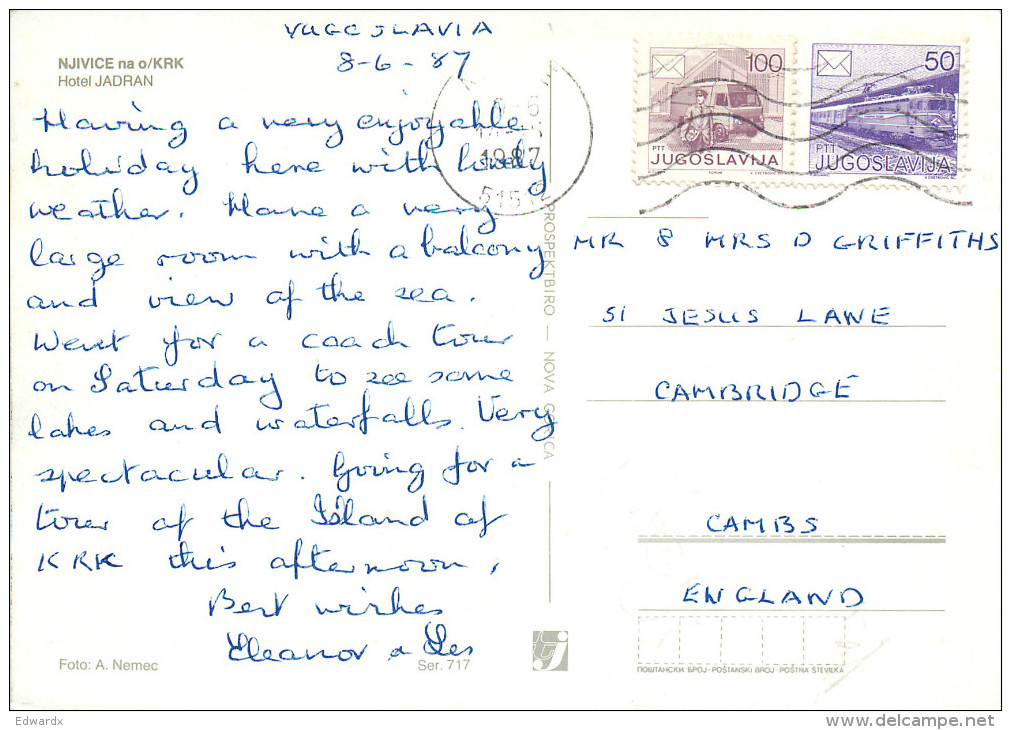 YUGOSLAVIA
8-6-87
NJIVICE na o/KRK
Hotel JADRAN
Having a very enjoyable
holiday here with lovely
weather. Have a very
large room with a balcony
and view of the sea.
Went for a coach tour
on Saturday to see some
lakes and waterfalls. Very
spectacular. Going for a
tour of the Island of
KRK this afternoon.
Best wishes
Eleanor & Les
Foto: A. Nemec
Ser. 717
PROSPEKTBIRO — NOVA GORICA
1987
100
PTT
JUGOSLAVIJA
50
PTT
JUGOSLAVIJA
MR & MRS D GRIFFITHS
51 JESUS LANE
CAMBRIDGE
CAMBS
ENGLAND
ПОШТАНСКИ БРОЈ-POŠTANSKI BROJ-POŠTNA ŠTEVILKA
Edwardx
delcampe.net